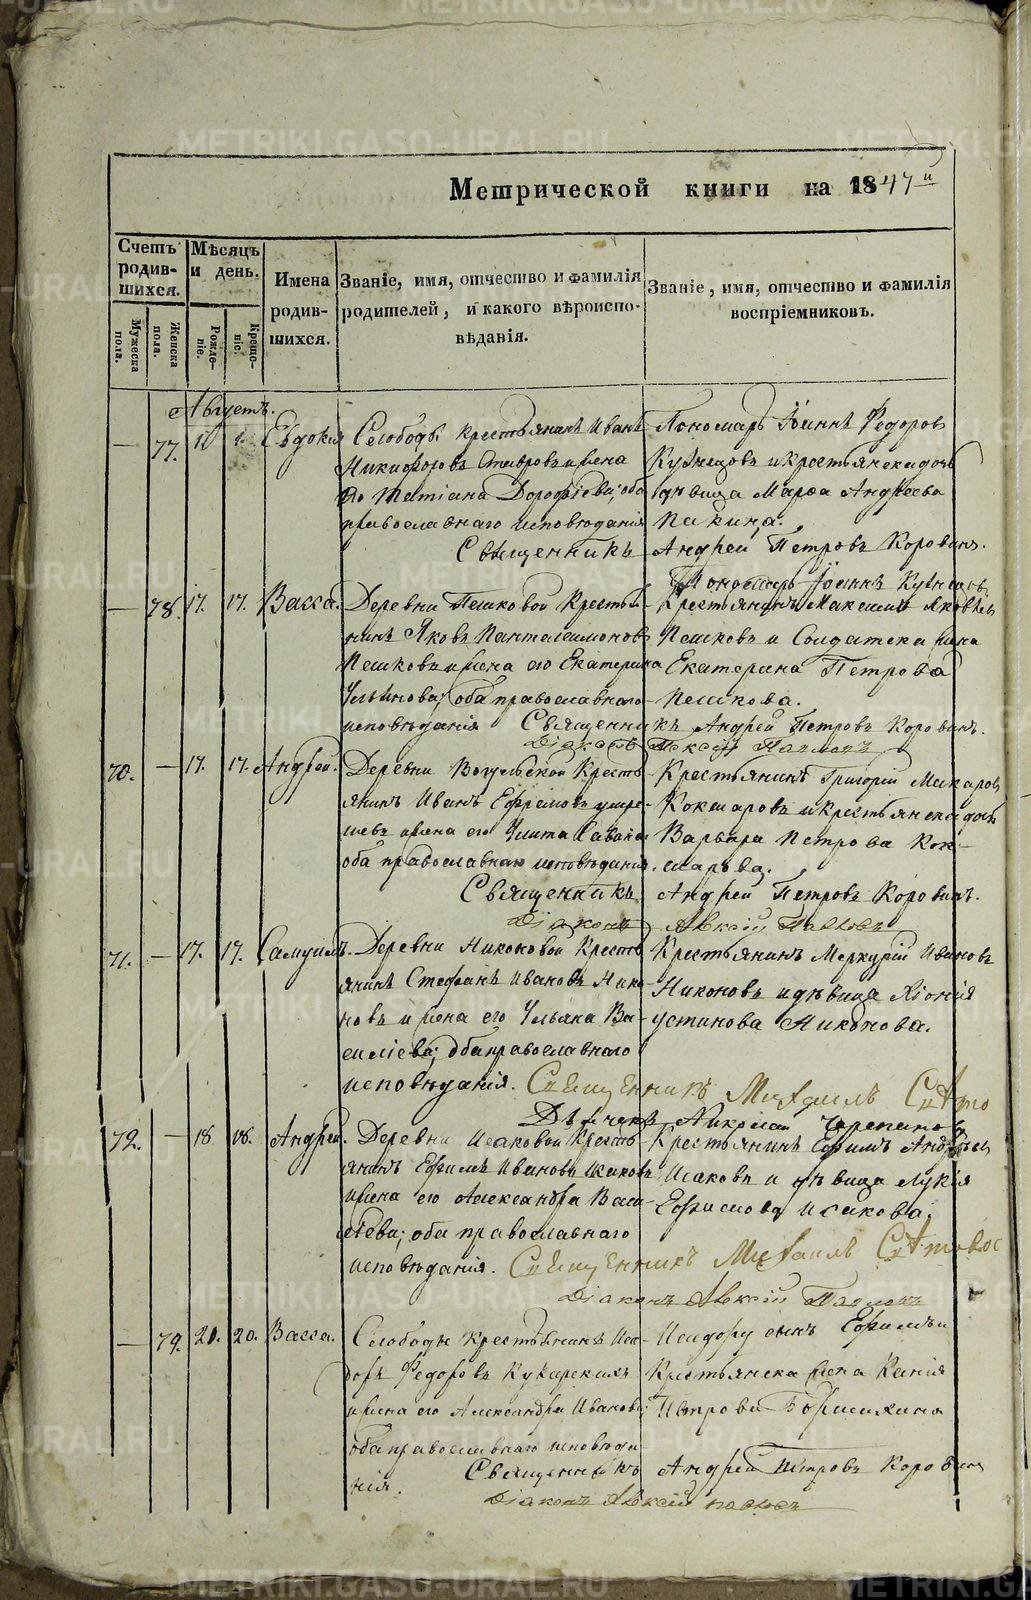 METRIKI.GASO-URAL.RU
Метрической книги на 1847й
Счетъ родив-шихся.
Мѣсяцъ и день.
Имена родив-шихся.
Званіе, имя, отчество и фамилія родителей, и какого вѣроиспо-вѣданія.
Званіе, имя, отчество и фамилія воспріемниковъ.
Мужеска пола.
Женска пола.
Рожде-ніе.
Креще-ніе.
Августъ.
— 77. Евдокия
Слободы крестьянинъ Иванъ
Никифоровъ и жена
его Татіана Дорофѣева; оба
православнаго исповѣданія
Пономарь Іоаннъ Федоровъ
Кузнецовъ и крестьянска дочь
дѣвица Марѳа Андреева
Священникъ Андрей Петровъ Коровинъ.
Пономарь Іоаннъ Кузнецовъ
— 78. 17. 17. Васса.
Деревни Пешковой Крестья-
нинъ Яковъ Панталеимоновъ
Пешковъ и жена его Екатерина
Ульянова; оба православнаго
исповѣданія
Крестьянинъ Максимъ Яковлевъ
Пешковъ и Солдатска жена
Екатерина Петрова
Пешкова.
Священникъ Андрей Петровъ Коровинъ.
Діаконъ Алексій Павловъ
70. — 17. 17. Андрей.
Деревни Вогульской Кресть-
янинъ Иванъ Ефремовъ
жена его Улита Савина
оба православнаго исповѣданія.
Крестьянинъ Григорій Макаровъ
Кокшаровъ и крестьянска дочь
Варвара Петрова Кок-
шарова.
Священникъ Андрей Петровъ Коровинъ.
Діаконъ Алексій Павловъ
71. — 17. 17. Самуилъ.
Деревни Никоновой Кресть-
янинъ Стефанъ Ивановъ Нико-
новъ и жена его Ульяна Ва-
силіева; оба православнаго
исповѣданія.
Крестьянинъ Меркурій Ивановъ
Никоновъ и дѣвица Хіонія
Устинова Никонова.
Священникъ Михаилъ
Дьячекъ Николай Черепановъ
72. — 18 18. Андрей.
Деревни Исаковой Кресть-
янинъ Ефимъ Ивановъ Исаковъ
и жена его Александра Васи-
льева; оба православнаго
исповѣданія.
Крестьянинъ Ефимъ Андреевъ
Исаковъ и дѣвица Лукія
Ефимова Исакова.
Священникъ Михаилъ
Діаконъ Алексій Павловъ
— 79. 20. 20. Васса.
Слободы крестьянинъ Иси-
доръ Федоровъ Кукарскихъ
и жена его Александра Иванова;
оба православнаго исповѣда-
нія.
Исидору сынъ Ефимъ и
Крестьянска жена Ксенія
Петрова
Священникъ Андрей Петровъ Коровинъ
Діаконъ Алексій Павловъ